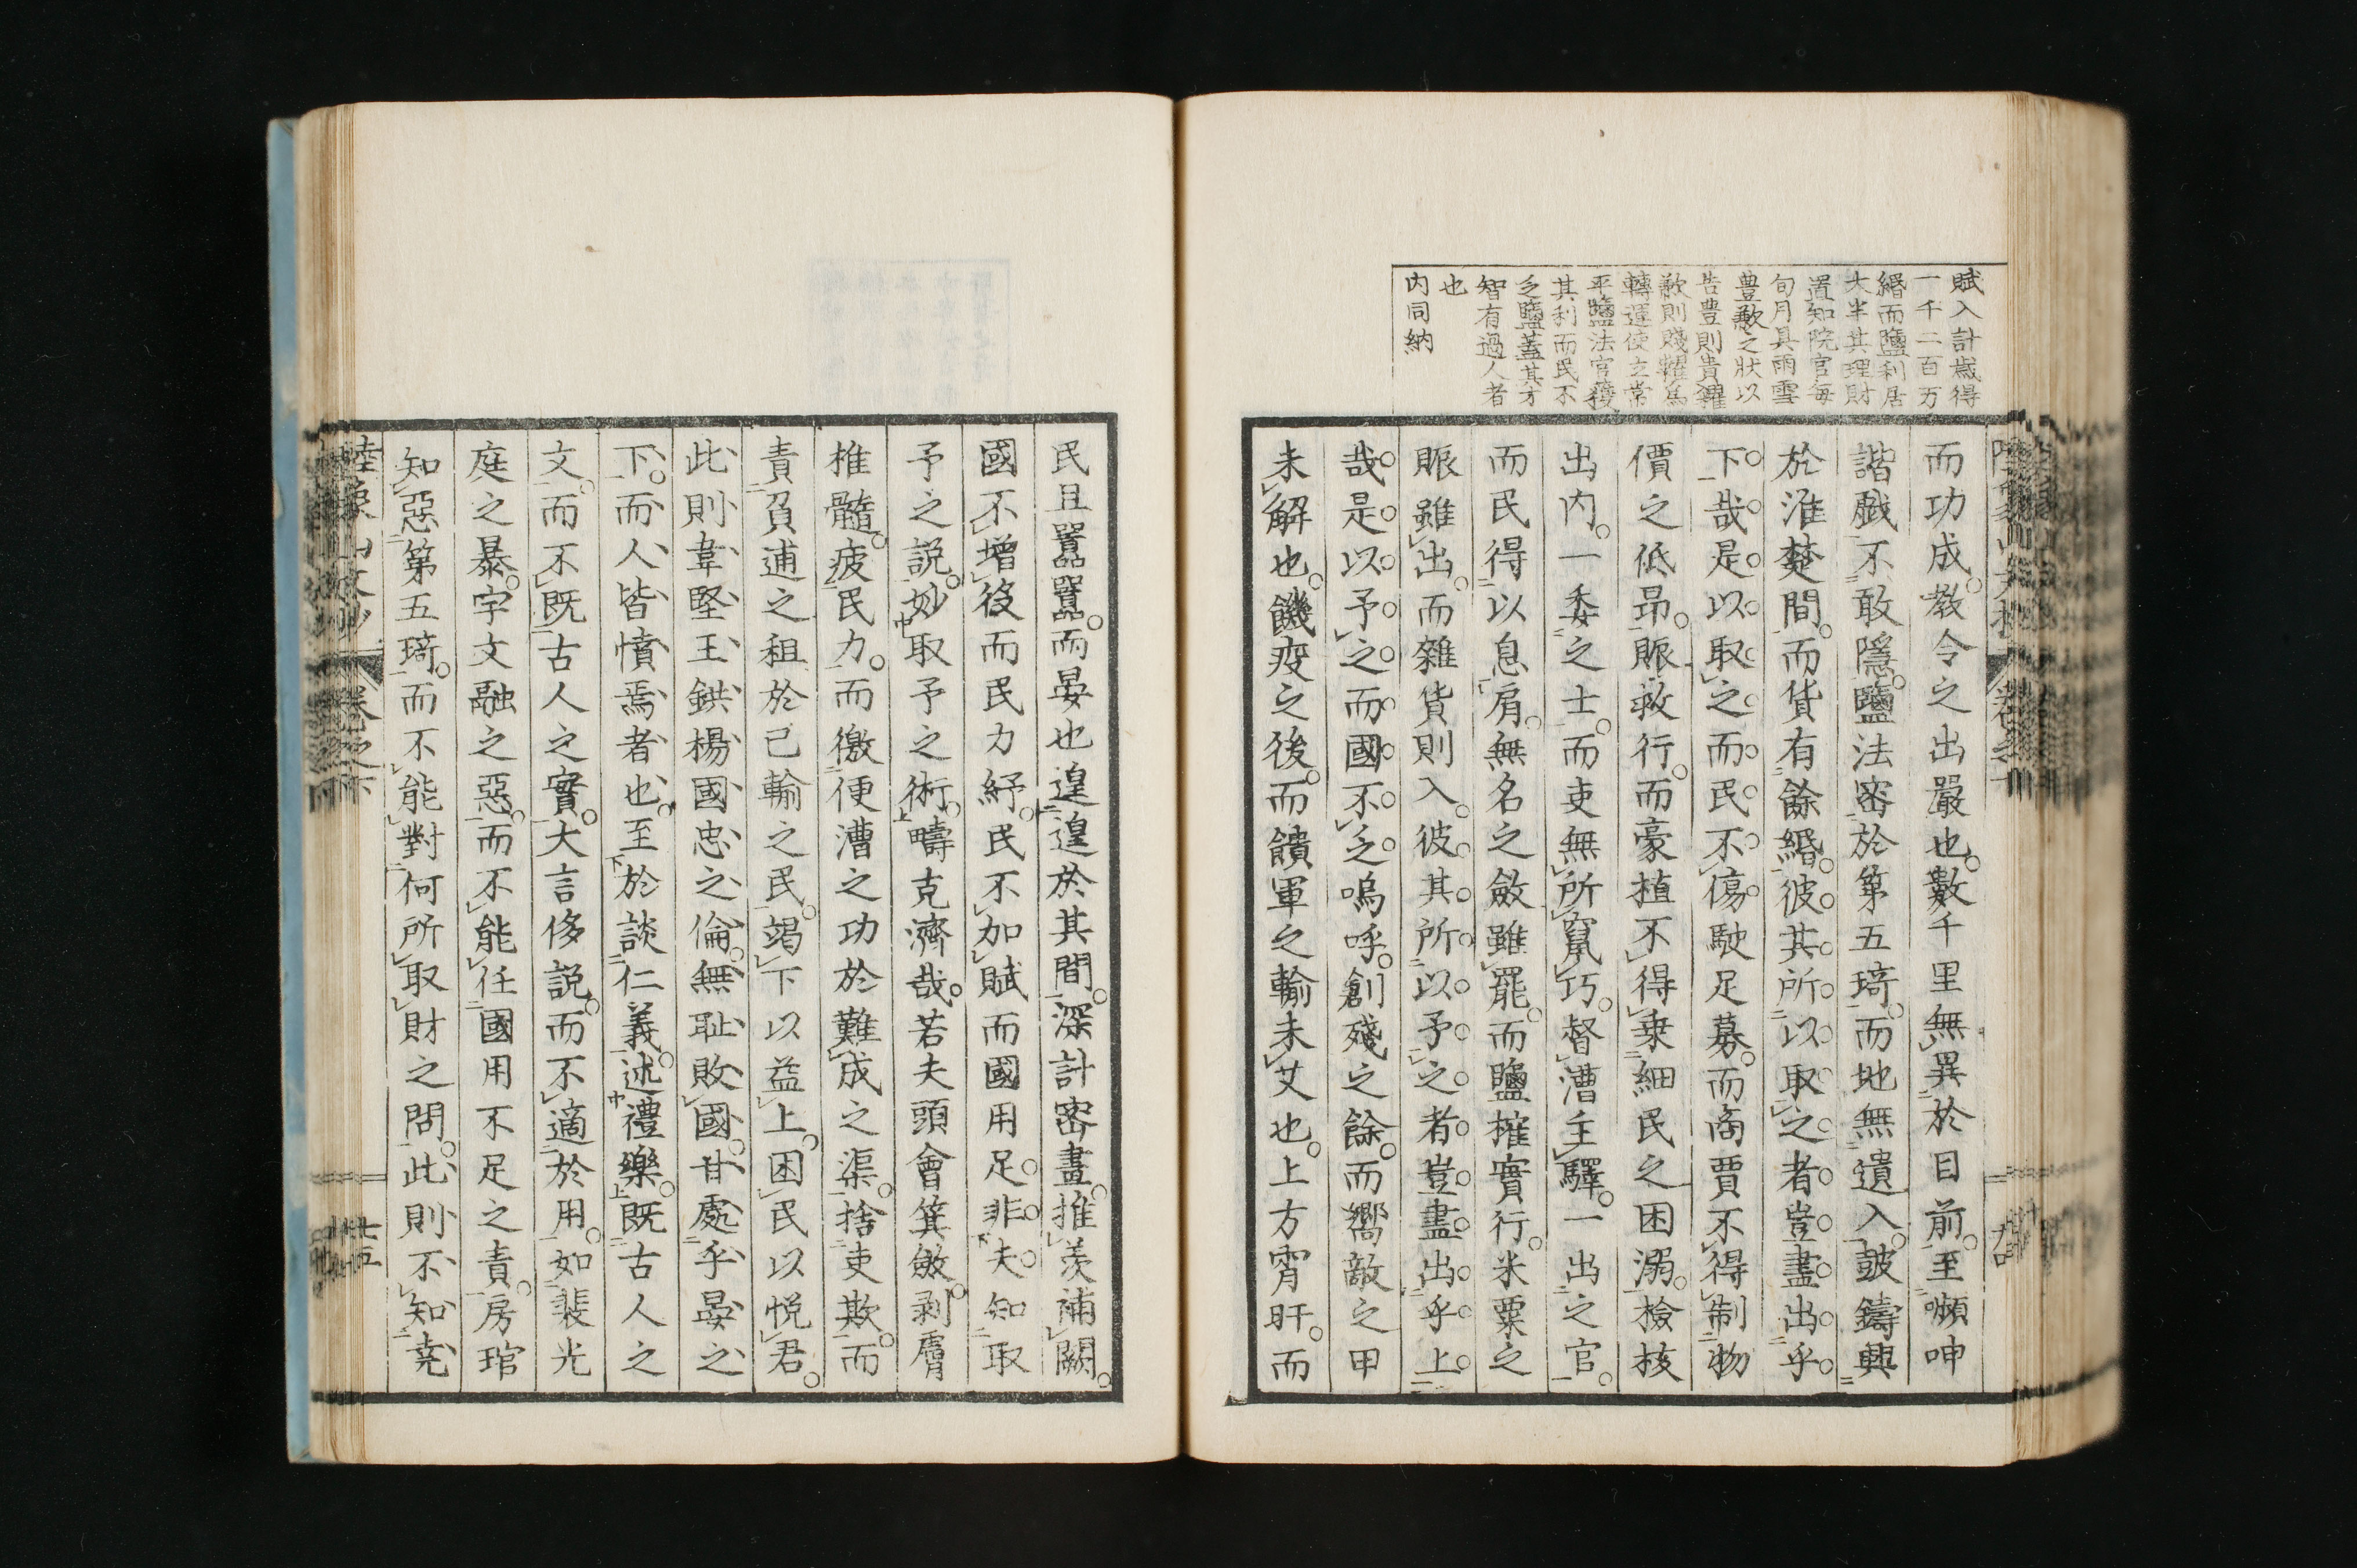 賦入計歳得
一千二百万
緡而鹽利居
大半其理財
置知院官毎
旬月具雨雪
豊歉之状以
告豊則貴糴
歉則賤糶爲
轉運使立常
平鹽法官獲
其利而民不
乏鹽蓋其才
智有過人者
也
内同納
而功成。教令之出嚴也。數千里無異於目前。至嚬呻
諧戲不敢隱。鹽法密於第五琦。而地無遺入。鼓鑄興
於淮楚間。而貨有餘緡。彼其所以取之者豈盡出乎
下哉是以取之而民不傷駛足募。而商賈不得制物
價之低昂。賑救行。而豪植不得乗細民之困溺。檢核
出内。一委之士。而吏無所竄巧。督漕主驛。一出之官。
而民得以息肩。無名之斂雖罷。而鹽搉實行。米粟之
賑雖出。而雜貨則入。彼其所以予之者豈盡出乎上
哉是以予之而國不乏嗚呼。創殘之餘。而嚮敵之甲
未解也。饑疫之後。而饋軍之輸未艾也。上方宵旰。而
民且囂囂。而晏也遑遑於其間。深計密畫。推羨補闕。
國不増役而民力紓。民不加賦而國用足。非夫知取
予之説。妙取予之術。疇克濟哉。若夫頭會箕斂。剥膚
椎髓。疲民力。而徼便漕之功於難成之渠。捨吏欺。而
責負逋之租於已輸之民。竭下以益上。困民以悦君。
此則韋堅王鉷楊國忠之倫。無耻敗國。甘處乎晏之
下。而人皆憤焉者也。至於談仁義。述禮樂。既古人之
文。而不既古人之實。大言侈説。而不適於用。如裴光
庭之暴。宇文融之惡。而不能任國用不足之責。房琯
知惡第五琦。而不能對何所取財之問。此則不知堯
陸象山文抄 卷之下 廿五